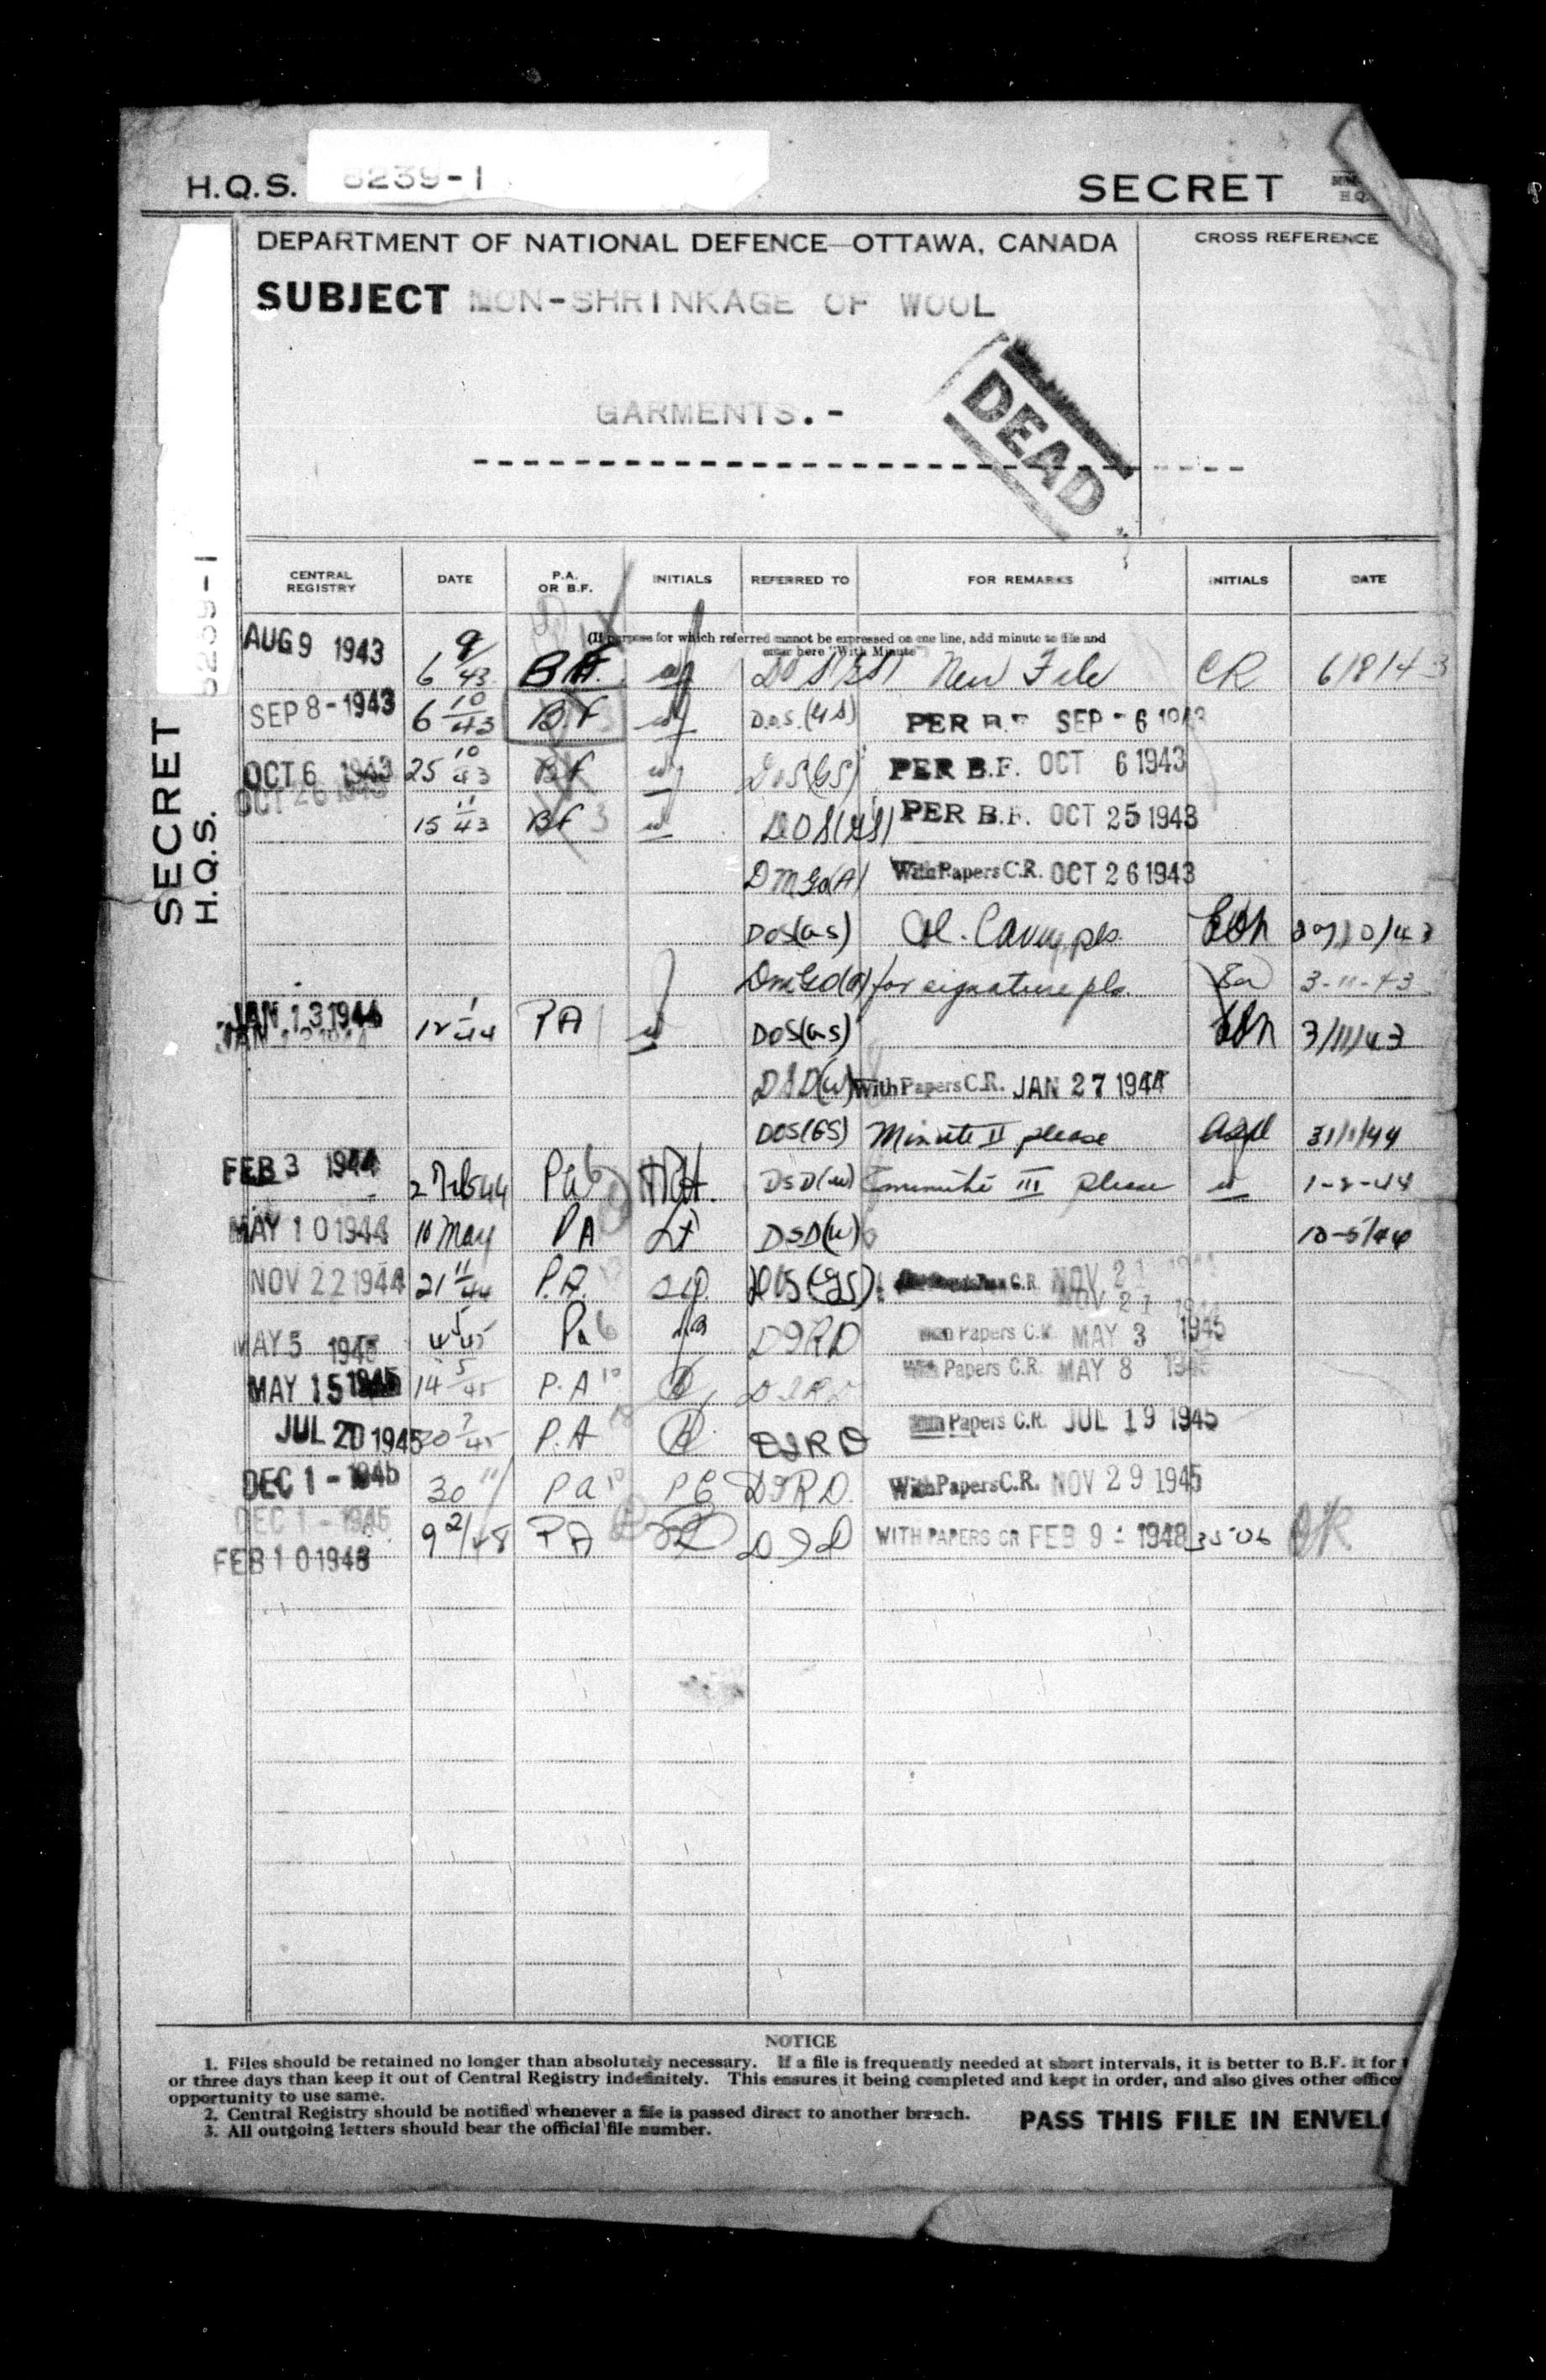 H.Q.S. 8239-1 SECRET
DEPARTMENT OF NATIONAL DEFENCE—OTTAWA, CANADA CROSS REFERENCE
SUBJECT NON-SHRINKAGE OF WOOL
GARMENTS.-
DEAD
SECRET
H.Q.S. 8239-1
CENTRAL REGISTRY DATE P.A. OR B.F. INITIALS REFERRED TO FOR REMARKS INITIALS DATE
(If purpose for which referred cannot be expressed on one line, add minute to file and
enter here "With Minute")
AUG 9 1943 6 9/43 B.F. New File CR 6/8/43
SEP 8-1943 6 10/43 B.F. D.O.S.(GS) PER B.F. SEP -6 1943
OCT 6 1943 25 10/43 BF DOS(GS) PER B.F. OCT 6 1943
OCT 26 1943 15 11/43 BF DOS(GS) PER B.F. OCT 25 1943
DMGO(A) With Papers C.R. OCT 26 1943
DOS(GS)
DMGO(A) for signature pls. 3-11-43
JAN 13 1944 12 1/44 PA DOS(GS) 3/11/43
DSD(W) With Papers C.R. JAN 27 1944
DOS(GS) Minute II please 31/1/44
FEB 3 1944 2 Feb 44 PA DSD(W) minute III please 1-2-44
MAY 10 1944 10 May PA DSD(W) 10-5/44
NOV 22 1944 21 11/44 P.A. DOS(GS) C.R. NOV 21
MAY 5 1945 4 5/45 Pa DIRD With Papers C.R. MAY 3 1945
MAY 15 1945 14 5/45 P.A DIRD With Papers C.R. MAY 8 1945
JUL 20 1945 20 7/45 P.A DIRD With Papers C.R. JUL 19 1945
DEC 1-1945 30 11 PA DIRD. With Papers C.R. NOV 29 1945
DEC 1-1945
FEB 10 1948 9 2/48 PA WITH PAPERS CR FEB 9 - 1948
NOTICE
1. Files should be retained no longer than absolutely necessary. If a file is frequently needed at short intervals, it is better to B.F. it for
or three days than keep it out of Central Registry indefinitely. This ensures it being completed and kept in order, and also gives other office
opportunity to use same.
2. Central Registry should be notified whenever a file is passed direct to another branch.
3. All outgoing letters should bear the official file number.
PASS THIS FILE IN ENVEL